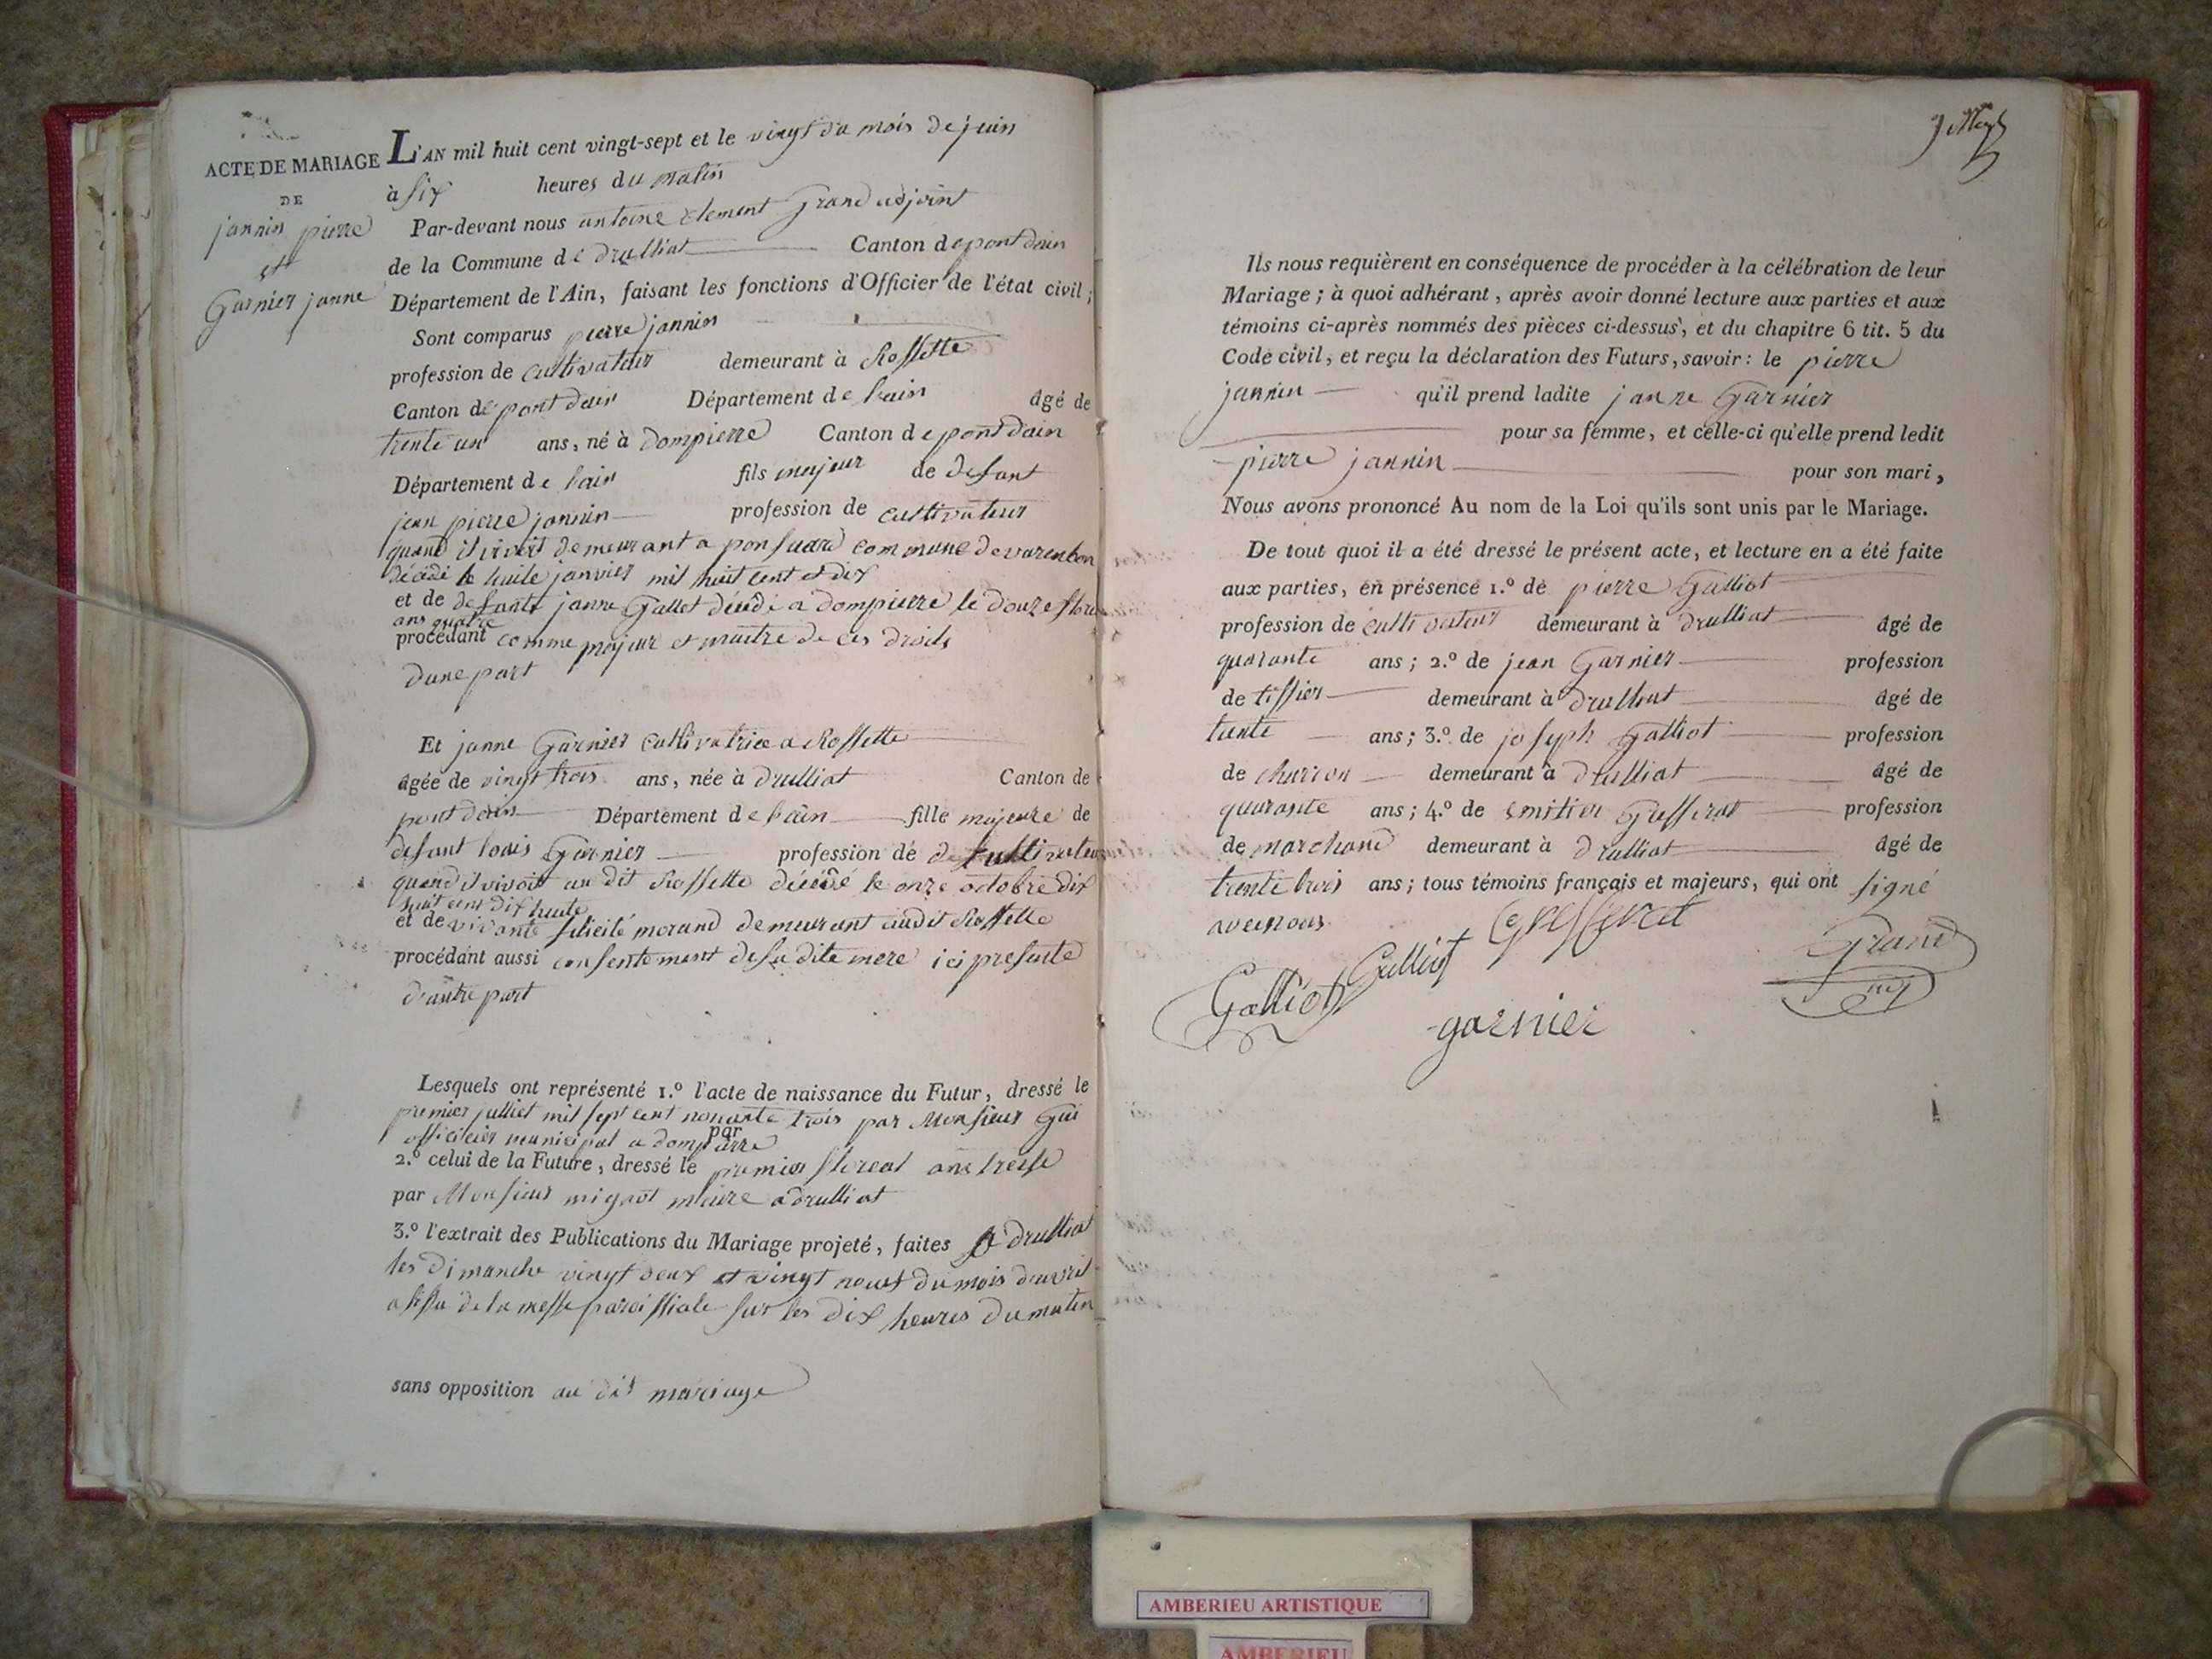 ACTE DE MARIAGE
DE
jannin pierre
et
Garnier janne
L'AN mil huit cent vingt-sept et le vingt du mois de juin
à six heures du matin
Par-devant nous antoine clement Grand adjoint
de la Commune de drulliat Canton de pont dain
Département de l'Ain, faisant les fonctions d'Officier de l'état civil;
Sont comparus pierre jannin
profession de cultivateur demeurant à Rossette
Canton de pont dain Département de lain âgé de
trente un ans, né à dompierre Canton de pont dain
Département de lain fils majeur de defant
jean pierre jannin profession de cultivateur
quand il vivoit demeurant a ponsuard commune de varenbon
décédé le huile janvier mil huit cent et dix
et de defante janne Gallet décédé a dompierre le douze flore
ans quatre
procédant comme majeur et maitre de ces droits
dune part
Et janne Garnier cultivatrice a Rossette
âgée de vingt trois ans, née à drulliat Canton de
pont dain Département de lain fille majeure de
defant louis Garnier profession de cultivateur
quand il vivoit au dit Rossette décédé le onze octobre dix
huit cent dix huite
et de vivante felicité morand demeurant audit Rossette
procédant aussi consentement de sa dite mere ici presente
d'autre part
Lesquels ont représenté 1.º l'acte de naissance du Futur, dressé le
premier julliet mil sept cent nonante trois par Monsieur Gui
officicier municipal a dompierre
par
2.º celui de la Future, dressé le premier floreal ans tresse
par Monsieur mignot maire a drulliat
3.º l'extrait des Publications du Mariage projeté, faites a drulliat
les dimanche vingt deux et vingt neuf du mois d'avril
a lissu de la messe paroissiale sur les dix heures du matin
sans opposition au dit mariage
Ils nous requièrent en conséquence de procéder à la célébration de leur
Mariage; à quoi adhérant, après avoir donné lecture aux parties et aux
témoins ci-après nommés des pièces ci-dessus, et du chapitre 6 tit. 5 du
Code civil, et reçu la déclaration des Futurs, savoir: le pierre
jannin qu'il prend ladite janne Garnier
pour sa femme, et celle-ci qu'elle prend ledit
pierre jannin pour son mari,
Nous avons prononcé Au nom de la Loi qu'ils sont unis par le Mariage.
De tout quoi il a été dressé le présent acte, et lecture en a été faite
aux parties, en présence 1.º de pierre Galliot
profession de cultivateur demeurant à drulliat âgé de
quarante ans; 2.º de jean Garnier profession
de tissier demeurant à drulliat âgé de
trente ans; 3.º de joseph Galliot profession
de charron demeurant à drulliat âgé de
quarante ans; 4.º de emilien Gresserat profession
de marchand demeurant à drulliat âgé de
trente trois ans; tous témoins français et majeurs, qui ont signé
avec nous
Galliot Galliot Gresserat Grand
garnier
AMBERIEU ARTISTIQUE
AMBERIEU